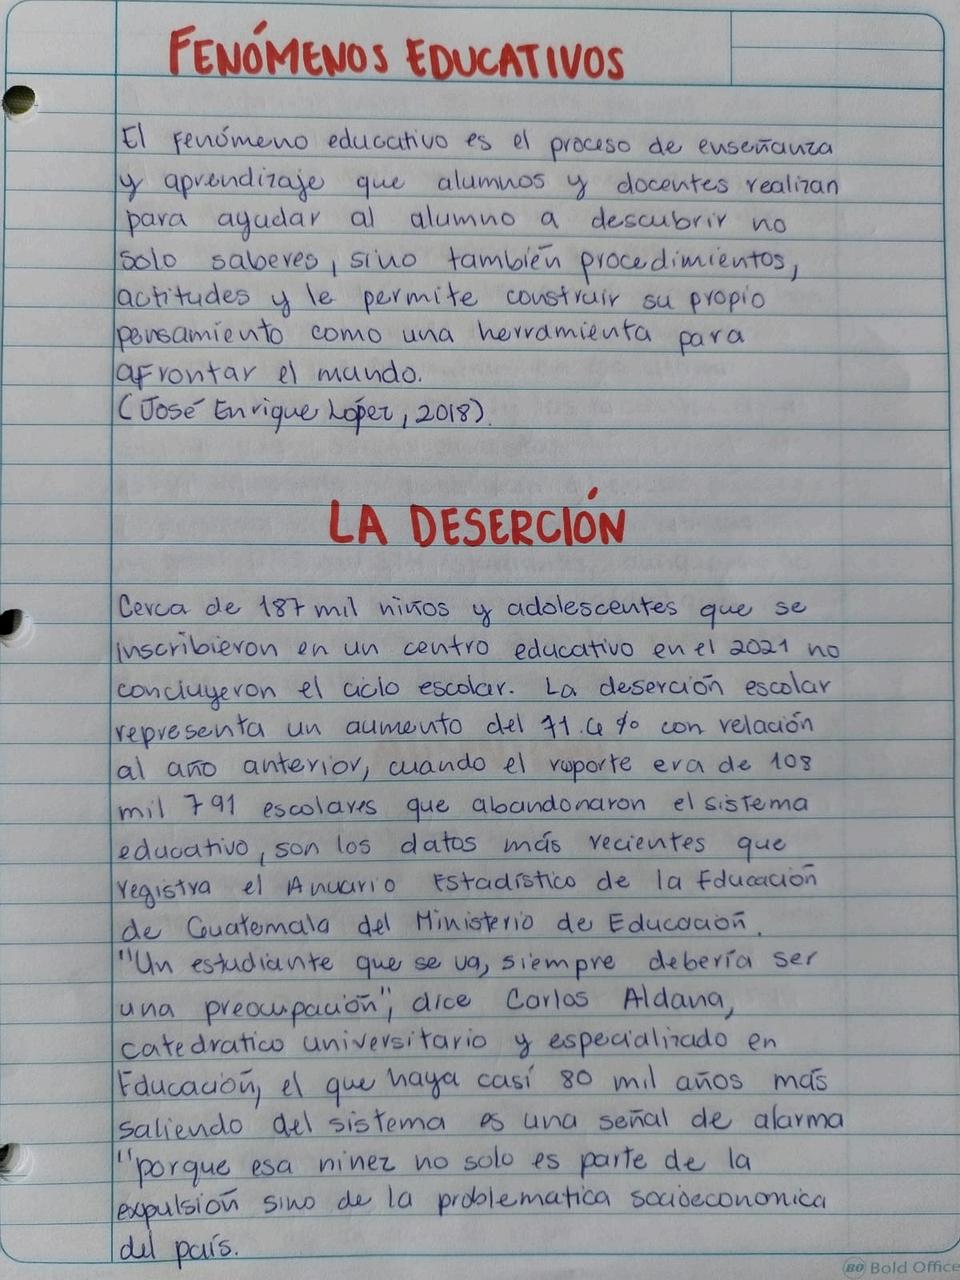 FENÓMENOS EDUCATIVOS
El fenómeno educativo es el proceso de enseñanza
y aprendizaje que alumnos y docentes realizan
para ayudar al alumno a descubrir no
solo saberes, sino también procedimientos,
actitudes y le permite construir su propio
pensamiento como una herramienta para
afrontar el mundo.
(José Enrique López, 2018).
LA DESERCIÓN
Cerca de 187 mil niños y adolescentes que se
inscribieron en un centro educativo en el 2021 no
concluyeron el ciclo escolar. La deserción escolar
representa un aumento del 71.6 % con relación
al año anterior, cuando el reporte era de 108
mil 791 escolares que abandonaron el sistema
educativo, son los datos más recientes que
registra el Anuario Estadístico de la Educación
de Guatemala del Ministerio de Educación.
"Un estudiante que se va, siempre debería ser
una preocupación", dice Carlos Aldana,
catedratico universitario y especializado en
Educación, el que haya casí 80 mil años más
saliendo del sistema es una señal de alarma
"porque esa ninez no solo es parte de la
expulsión sino de la problematica socioeconomica
del país.
BO Bold Office